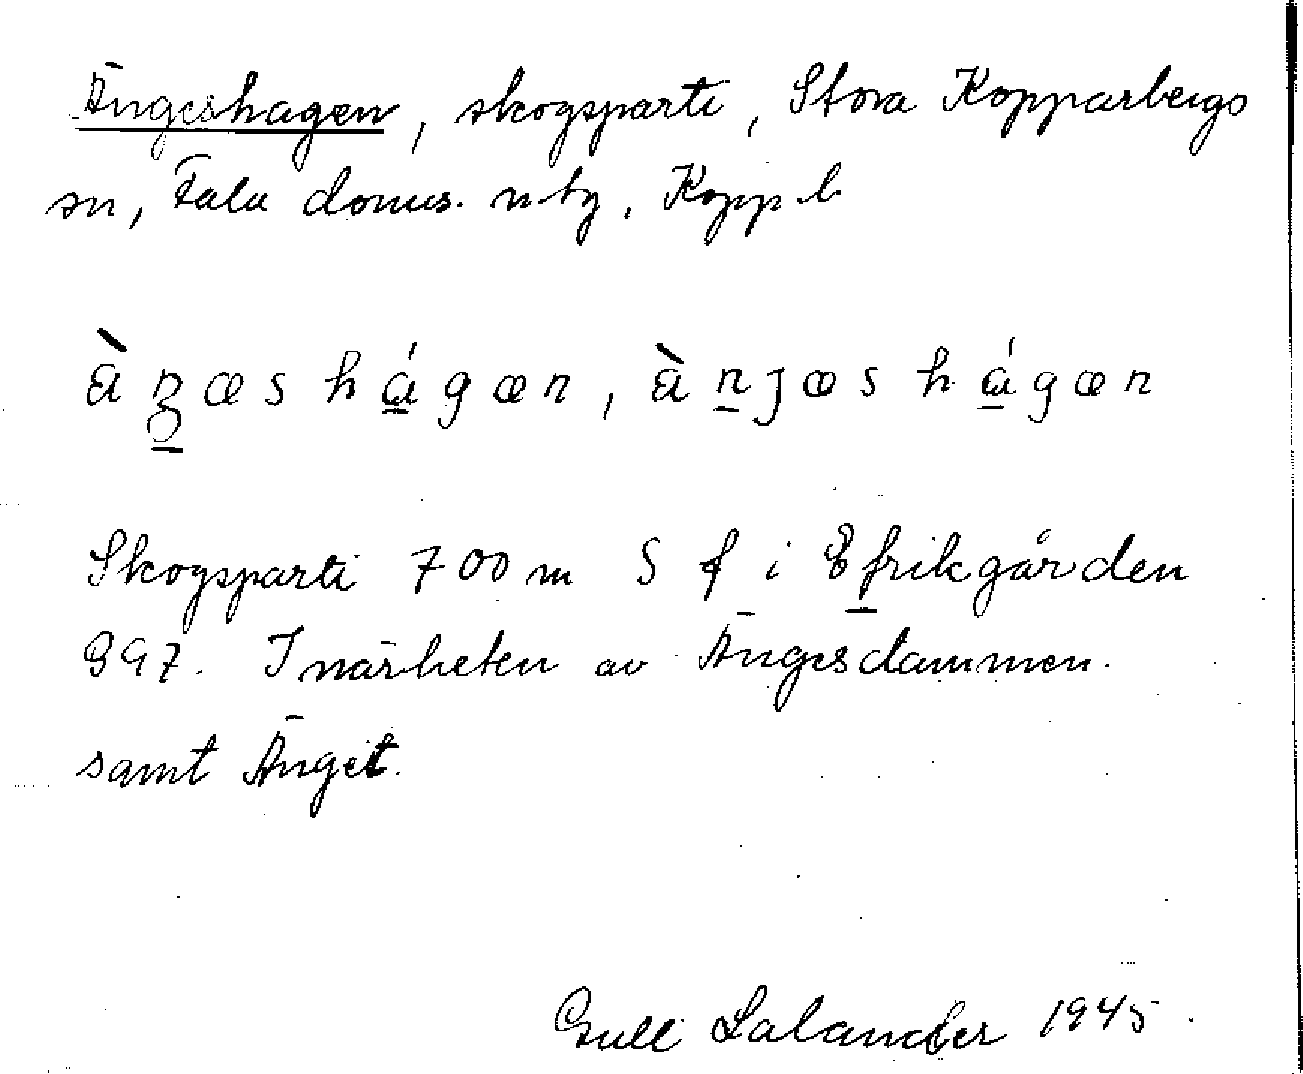 Ängeshagen, skogsparti, Stora Kopparbergs
sn, Falu doms. nby, Koppb
skogsparti 700 m S f i Efrikgården
997. I närheten av Ängesdammen.
samt Änget.
Gull Salander 1945